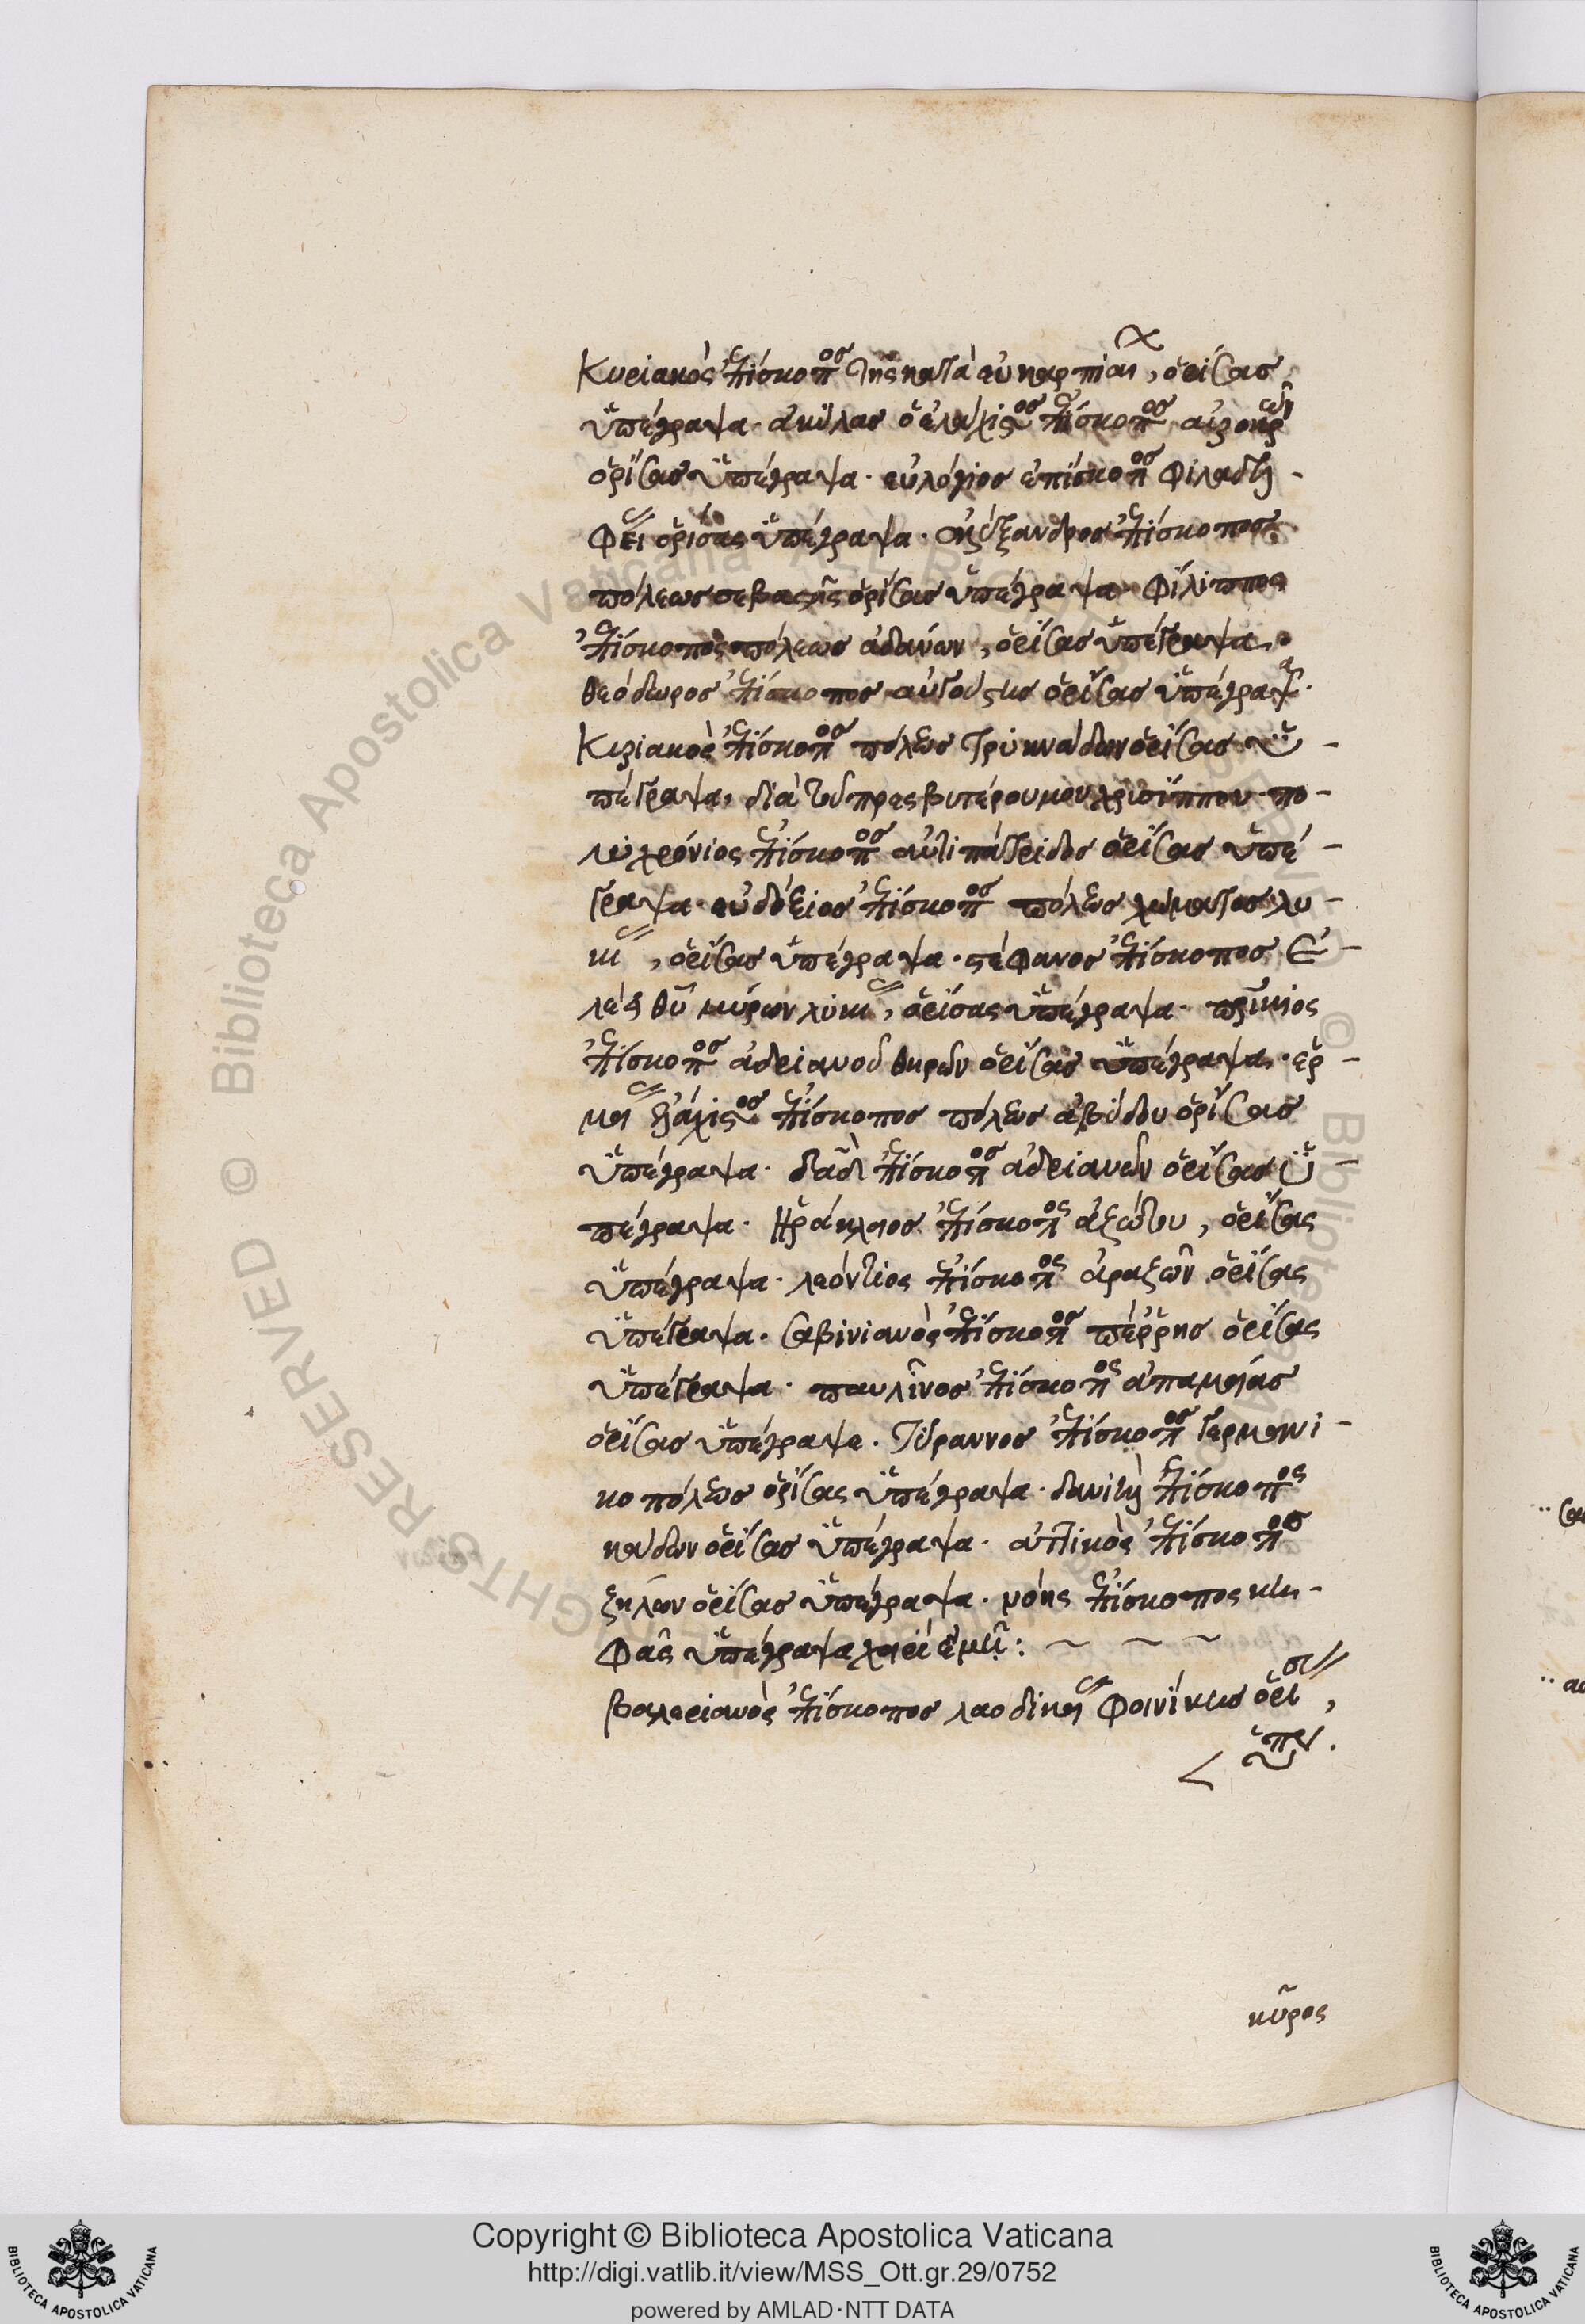 Κυριακὸς ἐπίσκοπος τῆς κατὰ εὐκαρπίαν, ὁρίσας
ὑπέγραψα. ἀκύλας ὁ ἐλάχιστος ἐπίσκοπος
ὁρίσας ὑπέγραψα. εὐλόγιος ἐπίσκοπος φιλαδελ-
φείας ὁρίσας ὑπέγραψα. ἀλέξανδρος ἐπίσκοπος
πόλεως σεβαστῆς ὁρίσας ὑπέγραψα. φίλιππος
ἐπίσκοπος πόλεως ἀδάνων, ὁρίσας ὑπέγραψα.
θεόδωρος ἐπίσκοπος αὐγούστης ὁρίσας ὑπέγραψα.
Κυριακὸς ἐπίσκοπος πόλεως τροκνάδων ὁρίσας ὑ-
πέγραψα, διὰ τοῦ πρεσβυτέρου μου χρυσίππου. πο-
λυχρόνιος ἐπίσκοπος ἀντιπατρίδος ὁρίσας ὑπέ-
γραψα. εὐδόξιος ἐπίσκοπος πόλεως χώματος λυ-
κίας, ὁρίσας ὑπέγραψα. στέφανος ἐπίσκοπος
μύρων λυκίας, ὁρίσας ὑπέγραψα.
ἐπίσκοπος ἀδριανουθηρῶν ὁρίσας ὑπέγραψα. ἑρ-
μείας ἐλάχιστος ἐπίσκοπος πόλεως ἀβύδου ὁρίσας
ὑπέγραψα. δαυὶδ ἐπίσκοπος ἀδριανῶν ὁρίσας ὑ-
πέγραψα. Ἡράκλειος ἐπίσκοπος ἀζώτου, ὁρίσας
ὑπέγραψα. λεόντιος ἐπίσκοπος ἀραξῶν ὁρίσας
ὑπέγραψα. σαβινιανὸς ἐπίσκοπος πέρρης ὁρίσας
ὑπέγραψα. παυλῖνος ἐπίσκοπος ἀπαμείας
ὁρίσας ὑπέγραψα. τύραννος ἐπίσκοπος γερμανι-
κοπόλεως ὁρίσας ὑπέγραψα. δανιὴλ ἐπίσκοπος
κάδων ὁρίσας ὑπέγραψα. ἀττικὸς ἐπίσκοπος
ζηλων ὁρίσας ὑπέγραψα. νόης ἐπίσκοπος κη-
φᾶς ὑπέγραψα χειρὶ ἐμῇ:
βαλεριανὸς ἐπίσκοπος λαοδικείας φοινίκης ὁρίσας,
ὑπέγρ.
κῦρος
Copyright © Biblioteca Apostolica Vaticana
http://digi.vatlib.it/view/MSS_Ott.gr.29/0752
powered by AMLAD·NTT DATA